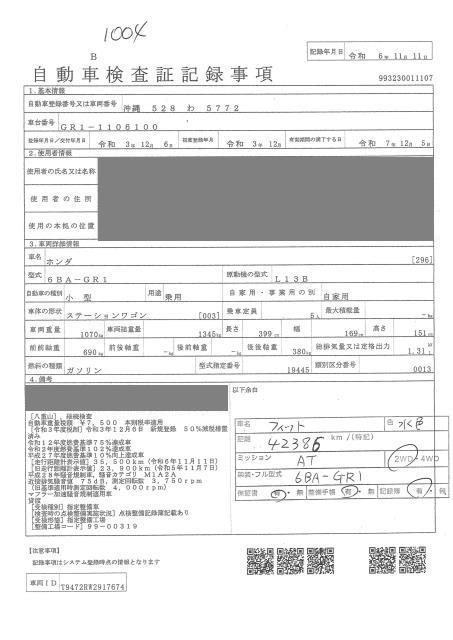 1004
B
記録年月日 令和 6年 11月 11日
自動車検査証記録事項
993230011107
1.基本情報
自動車登録番号又は車両番号 沖縄 528 わ 5772
車台番号 GR1-1106100
登録年月日/交付年月日 令和 3年 12月 6日 初度登録年月 令和 3年 12月 有効期間の満了する日 令和 7年 12月 5日
2.使用者情報
使用者の氏名又は名称
使用者の住所
使用の本拠の位置
3.車両詳細情報
車名 ホンダ [296]
型式 6BA-GR1 原動機の型式 L13B
自動車の種別 小型 用途 乗用 自家用・事業用の別 自家用
車体の形状 ステーションワゴン [003] 乗車定員 5人 最大積載量 -kg
車両重量 1070kg 車両総重量 1345kg 長さ 399cm 幅 169cm 高さ 151cm
前前軸重 690kg 前後軸重 -kg 後前軸重 -kg 後後軸重 380kg 総排気量又は定格出力 1.31L
燃料の種類 ガソリン 型式指定番号 19445 類別区分番号 0013
4.備考
以下余白
[八重山],継続検査
自動車重量税額 ¥7,500 本則税率適用
[令和3年度税制]令和3年12月6日 新規登録 50%減税措置
済み
令和12年度燃費基準75%達成車
令和2年度燃費基準102%達成車
平成27年度燃費基準10%向上達成車
[走行距離計表示値]35,500km(令和6年11月11日)
[旧走行距離計表示値]23,900km(令和5年11月7日)
平成28年騒音規制車、騒音カテゴリ M1A2A
近接排気騒音値 75dB、測定回転数 3,750rpm
(旧基準適用時測定回転数 4,000rpm)
マフラー加速騒音規制適用車
[受検種別]指定整備車
[検査時の点検整備実施状況]点検整備記録簿記載あり
[受検形態]指定整備工場
[整備工場コード]99-00319
車名 フィット 色
記録 42386 km/(特記)
ミッション AT 2WD・4WD
型式・フル型式 6BA-GR1
保証書 有・無 整備手帳 有・無 記録簿 有・無
[注意事項]
記録事項はシステム登録時点の情報となります
車両ID T9472RW2917674